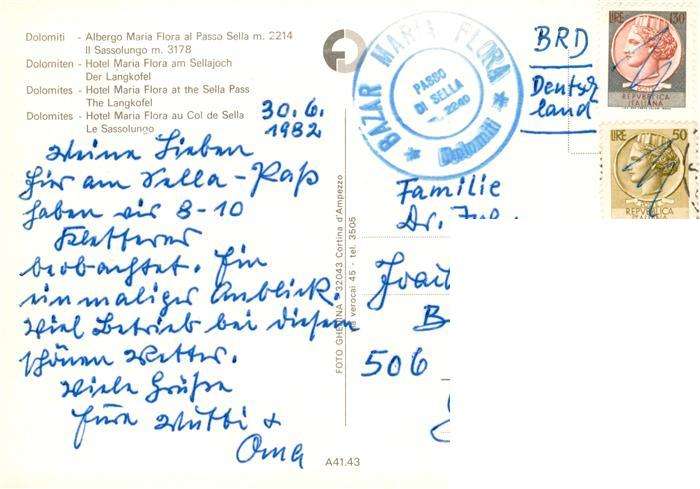 Dolomiti - Albergo Maria Flora al Passo Sella m. 2214
Il Sassolungo m. 3178
Dolomiten - Hotel Maria Flora am Sellajoch
Der Langkofel
Dolomites - Hotel Maria Flora at the Sella Pass
The Langkofel
Dolomites - Hotel Maria Flora au Col de Sella
Le Sassolungo
30.6.
1982
Meine Lieben
Hier am Sella-Paß
haben wir 8-10
Kletterer
beobachtet. Ein
einmaliger Anblick.
Viel Betrieb bei diesem
schönen Wetter.
Viele Grüße
Eure Mutti &
Oma
FOTO GHEDINA - 32043 Cortina d'Ampezzo
verocai 45 - tel. 3505
A41.43
BAZAR MARIA FLORA
PASSO
DI SELLA
m. 2240
Dolomiti
BRD
Deutsch
land
Familie
Dr.
B
506
LIRE 130
REPVBBLICA
ITALIANA
LIRE 50
REPVBBLICA
ITALIANA